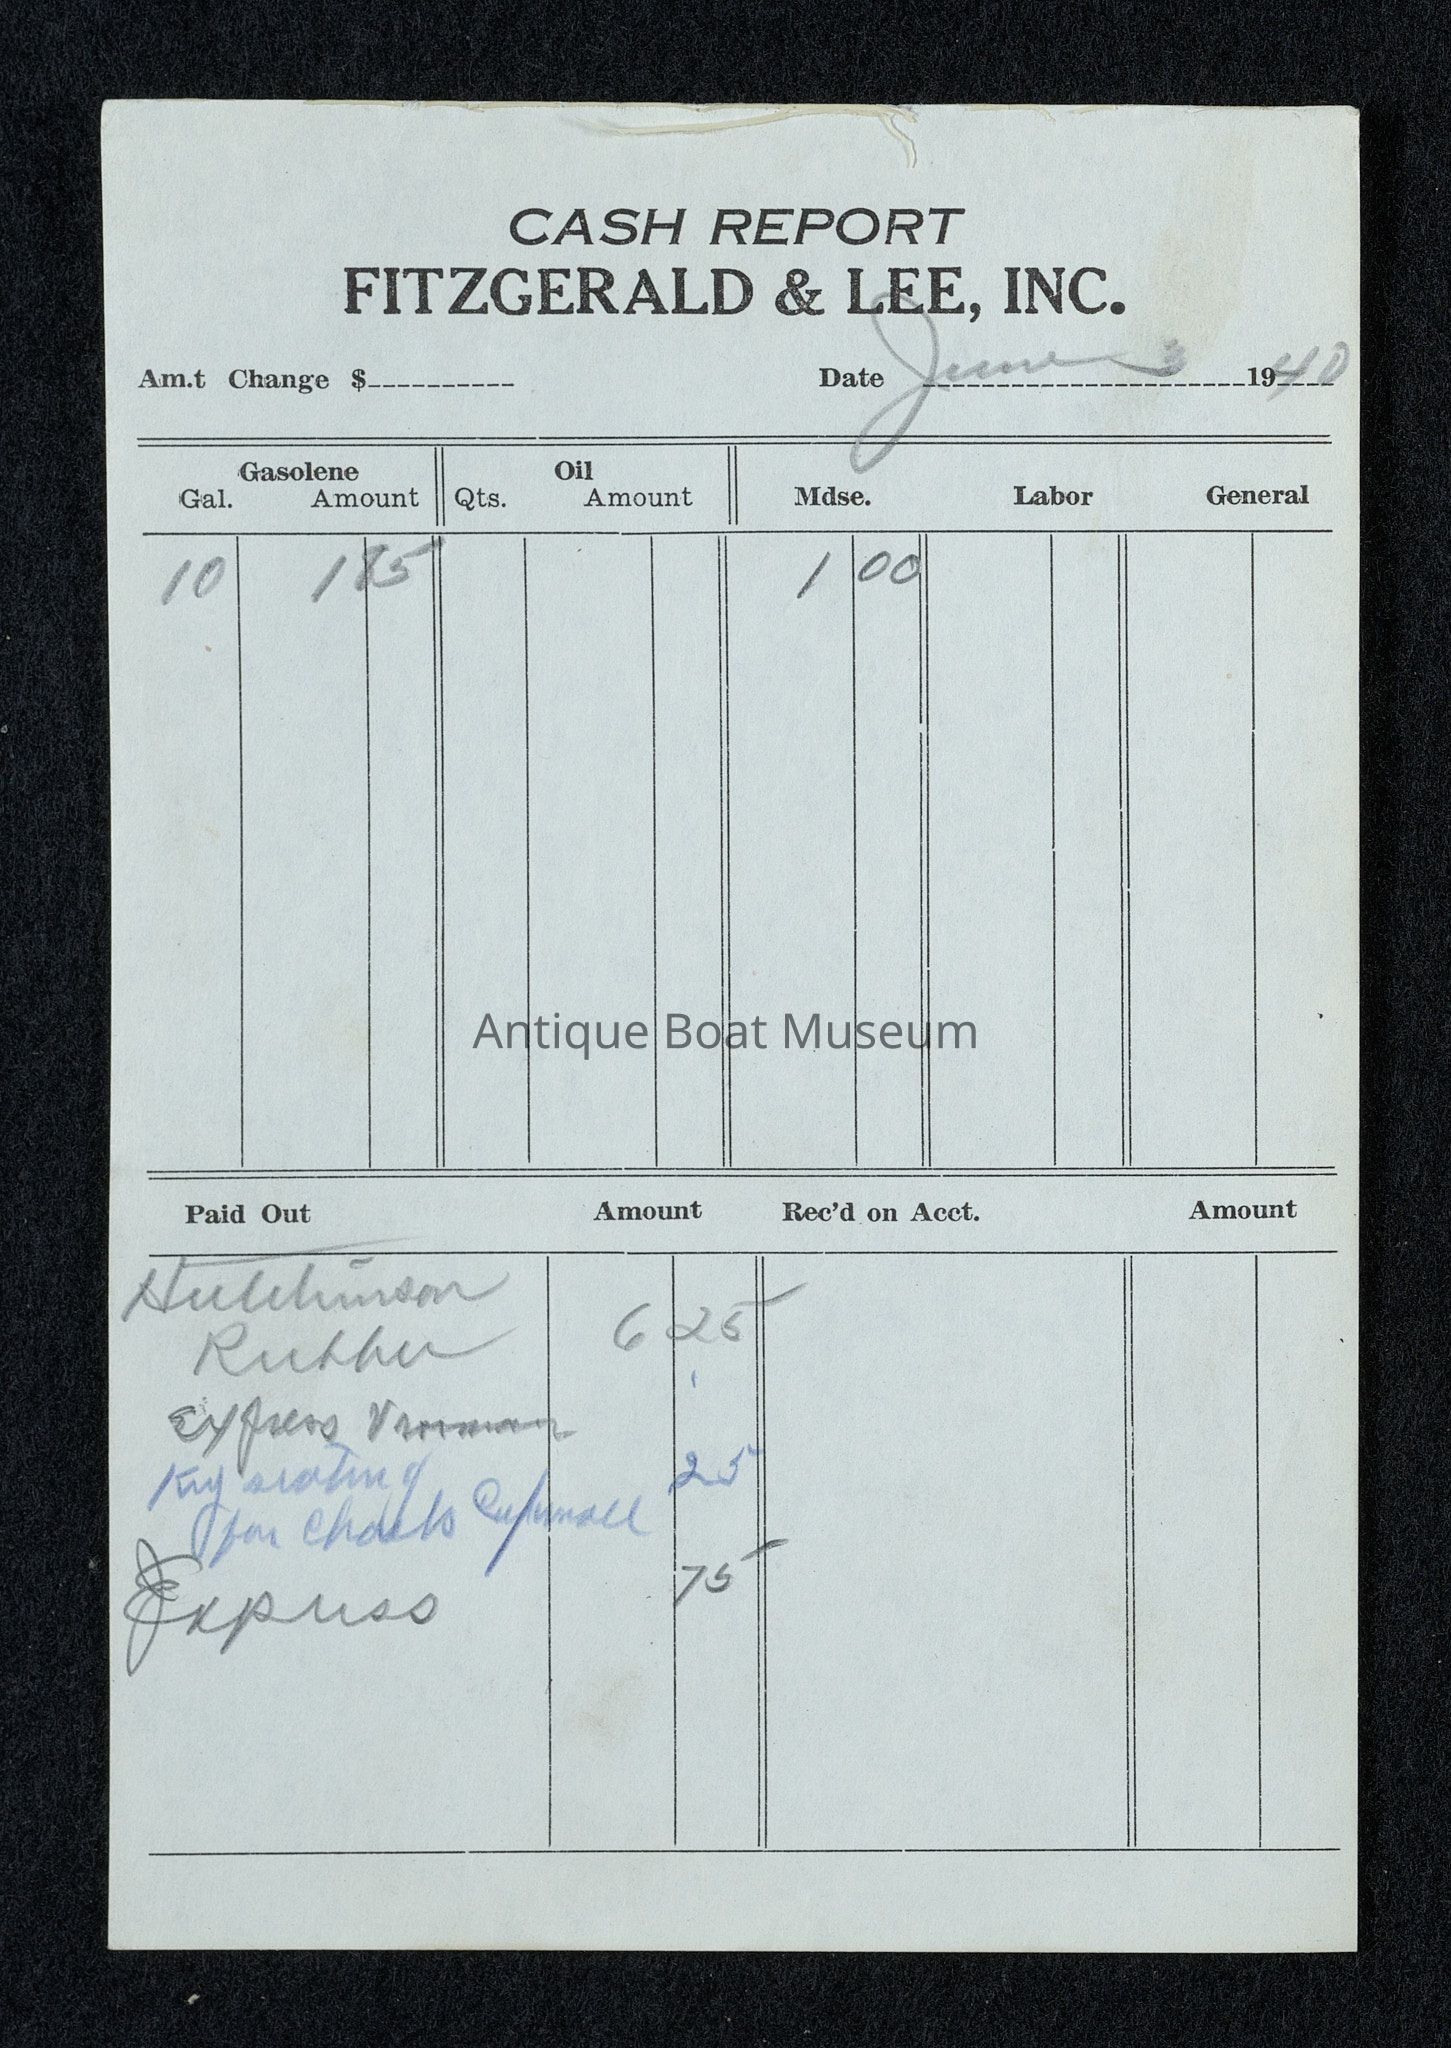 CASH REPORT
FITZGERALD & LEE, INC.
Am.t Change $ Date June 3 1940
Gasolene Oil
Gal. Amount Qts. Amount Mdse. Labor General
10 1 85 1 00
Antique Boat Museum
Paid Out Amount Rec'd on Acct. Amount
Hutchinson
Rubber 6 25
Express
Key seating 25
for Chalk
Express 75